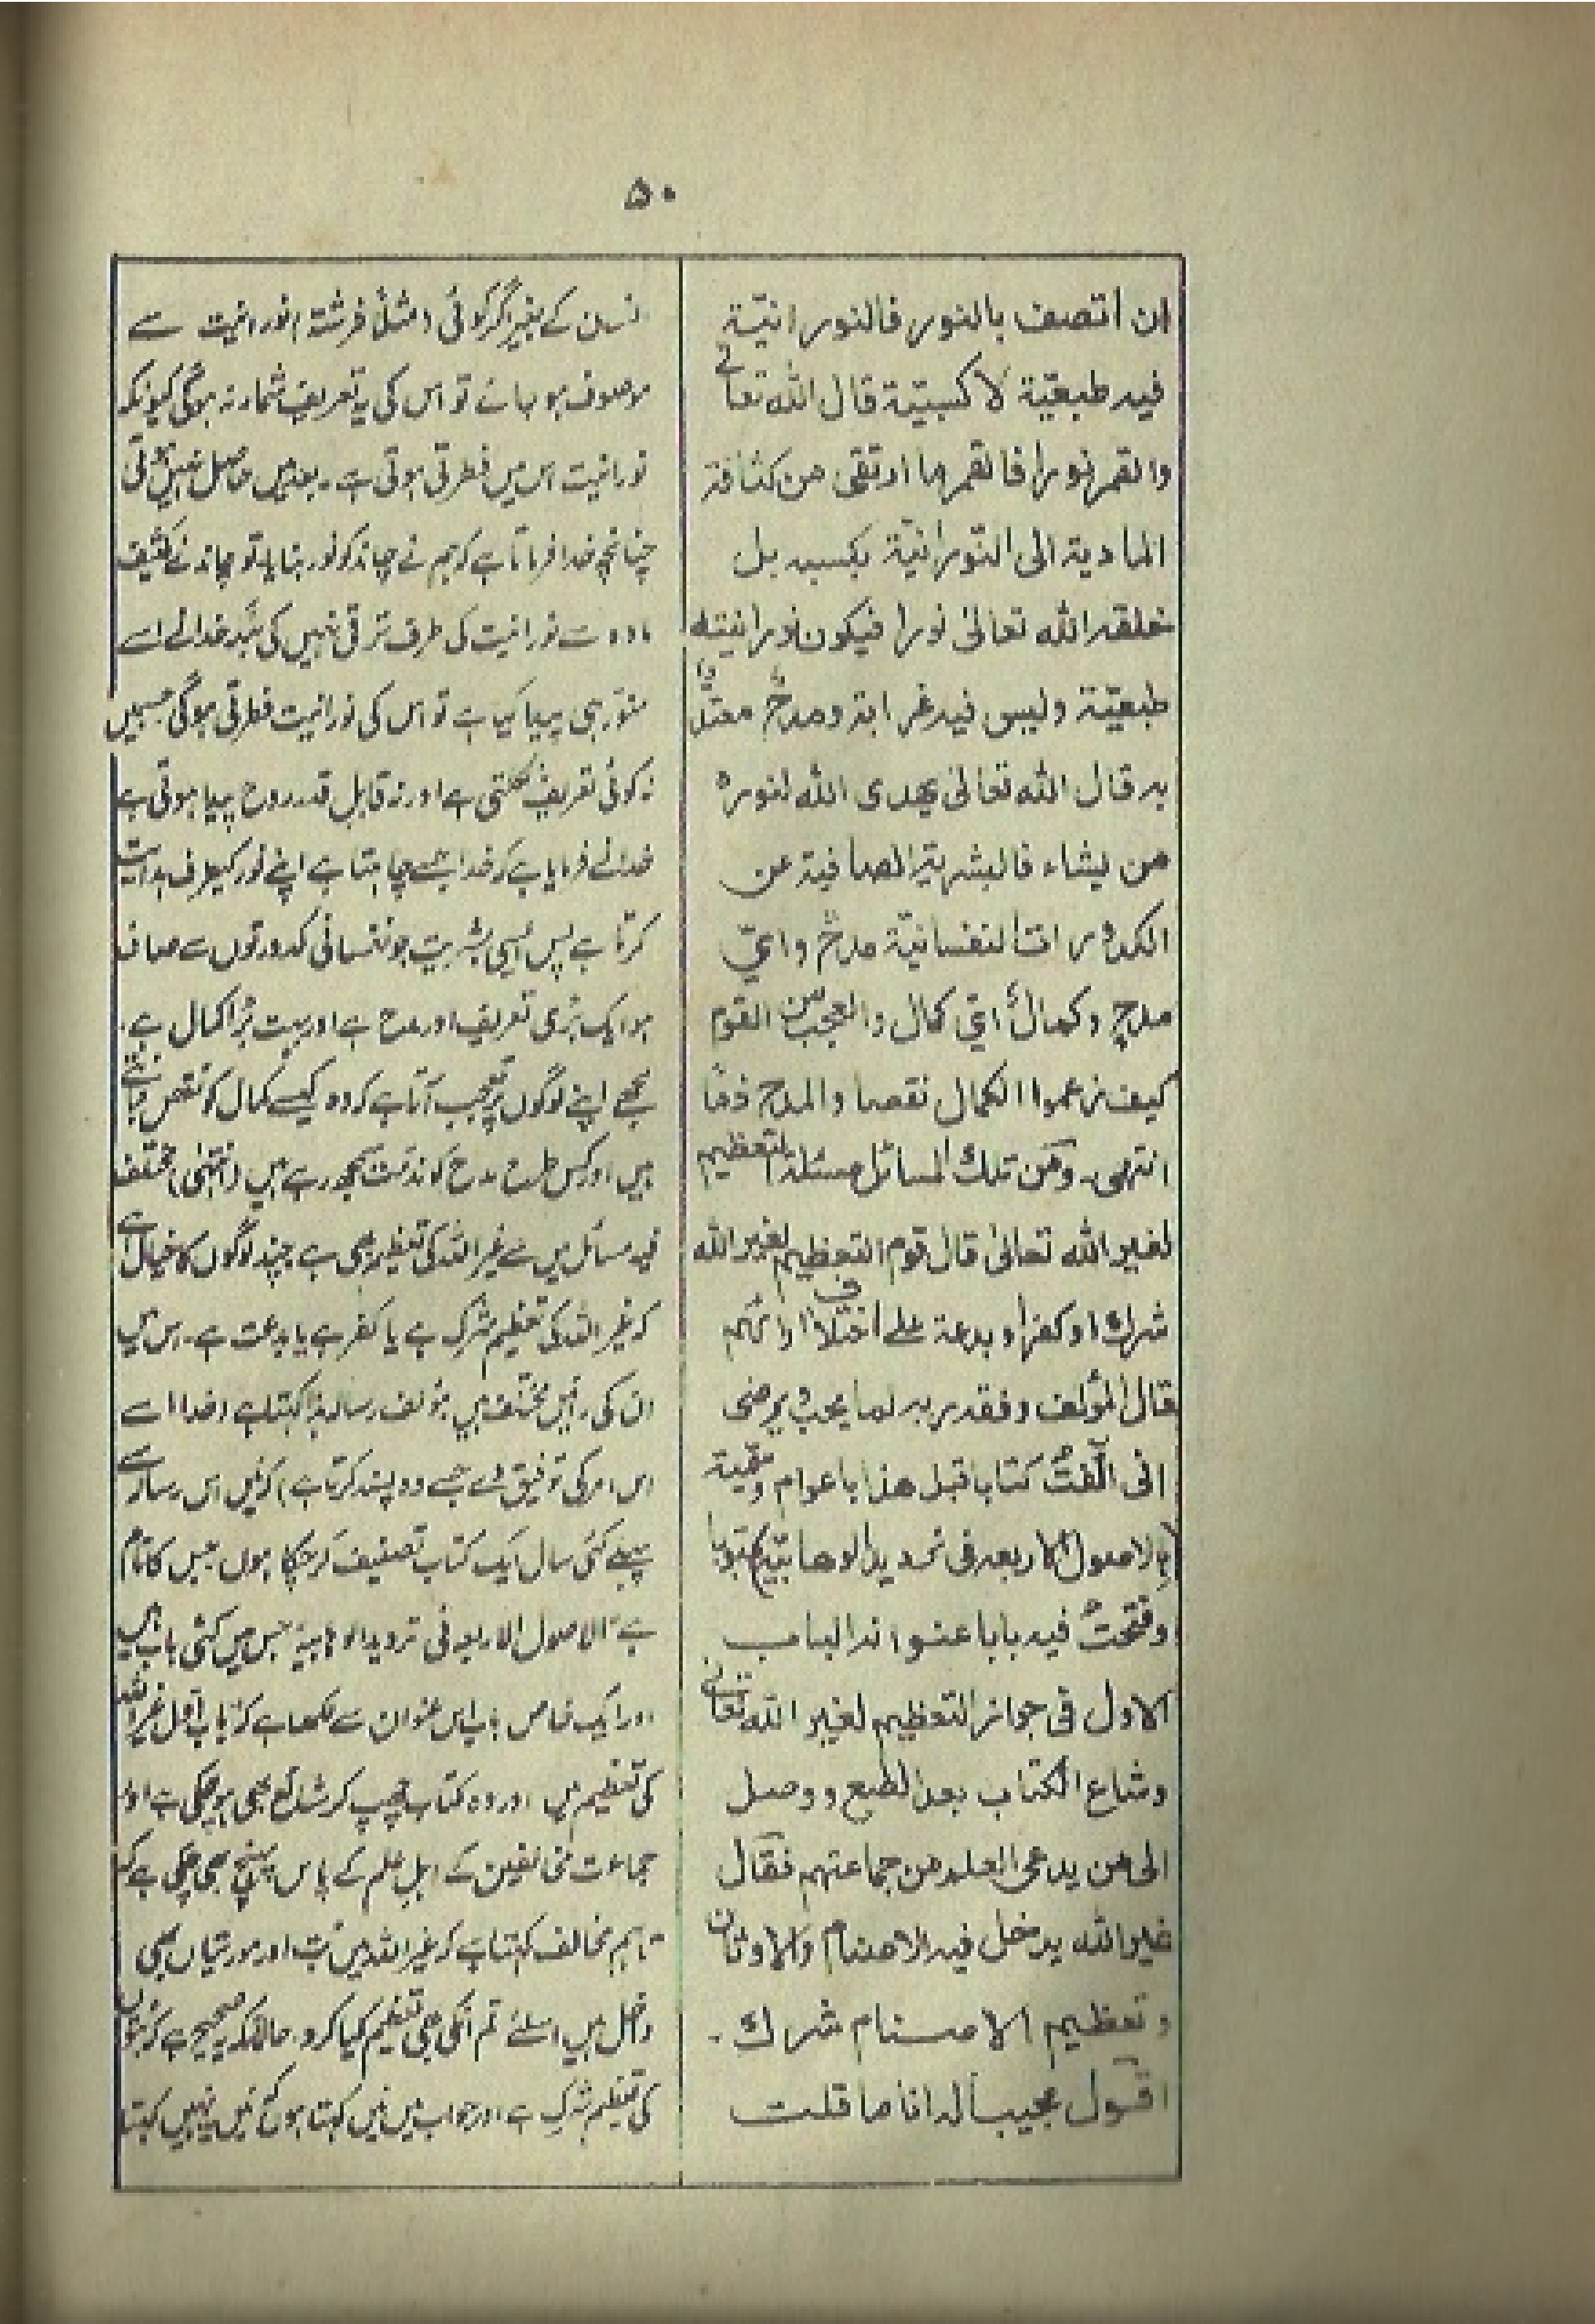 ۵۰
ان اتصف بالنور فالنورانیّة
فیه طبعیّة لا کسبیّة قال الله تعالی
والقمر نورا فالقمر ما ارتقی من کثافة
المادیة الی النّورانیّة بکسبه بل
خلقه الله تعالیٰ نورا فیکون نورانیته
طبعیّة ولیس فیه غرابة ومدحٌ معتدًّا
به قال الله تعالیٰ یهدی الله لنوره
من یشاء فالبشریة الصافیة عن
الکدورات النفسانیّة مدحٌ وایّ
مدحٍ وکمالٌ ایّ کمال والعجب من القوم
کیف زعموا الکمال نقصا والمدح ذمّا
انتهی۔ ومن تلك المسائل مسئلة التعظیم
لغیر الله تعالیٰ قال قوم التعظیم لغیر الله
شرك او کفر او بدعة علی اختلاف ارائهم
فقال المؤلف وفقه ربه لما یحب ویرضی
انی الّفتُ کتابا قبل هذا باعوام وسمّیته
(بالاصول الاربعه فی تردید الوهابیّه) مبوّبا
وفتحتُ فیه بابا عنوانه الباب
الاول فی جواز التعظیم لغیر الله تعالی
وشاع الکتاب بعد الطبع ووصل
الی من یدعی العلم من جماعتهم فقال
غیر الله یدخل فیه الاصنام والاوثان
وتعظیم الاصنام شرك۔
اقول مجیبا له انا ما قلت
انسان کے بغیر اگر کوئی (مثلاً فرشتہ) نورانیت سے
موصوف ہو جائے تو اس کی یہ تعریف شمار نہ ہوگی کیونکہ
نورانیت اس میں فطرتی ہوتی ہے۔ بعد میں حاصل نہیں ہوتی
چنانچہ خدا فرماتا ہے کہ ہم نے چاند کو نور بنایا۔ تو چاند نے کثیف
مادہ سے نورانیت کی طرف ترقی نہیں کی بلکہ خدا نے اسے
منوّر ہی پیدا کیا ہے تو اس کی نورانیت فطرتی ہوگی جسمیں
نہ کوئی تعریف نکلتی ہے اور نہ قابل قدر مدح پیدا ہوتی ہے
خدا نے فرمایا ہے کہ خدا جسے چاہتا ہے اپنے نور کیطرف ہدایت
کرتا ہے پس ایسی بشریت جو نفسانی کدورتوں سے صاف
ہو ایک بڑی تعریف اور مدح ہے اور بہت بڑا کمال ہے۔
مجھے اپنے لوگوں پر تعجب آتا ہے کہ وہ کیسے کمال کو نقص جانتے
ہیں اور کس طرح مدح کو مذمت سمجھ رہے ہیں (انتہیٰ) مختلف
فیہ مسائل میں سے غیر اللہ کی تعظیم بھی ہے۔ چند لوگوں کا خیال ہے
کہ غیر اللہ کی تعظیم شرک ہے یا کفر ہے یا بدعت ہے۔ اس میں
ان کی رائیں مختلف ہیں مؤلف رسالہ ہذا کہتا ہے (خدا اسے
اس امر کی توفیق دے جسے وہ پسند کرتا ہے) کہ میں اس رسالہ سے
پہلے کئی سال ایک کتاب تصنیف کر چکا ہوں جس کا نام
ہے "الاصول الاربعہ فی تردید الوہابیۃ" جس میں کئی باب ہیں
اور ایک خاص باب اس عنوان سے لکھا ہے کہ "باب اول غیر اللہ
کی تعظیم میں" اور وہ کتاب چھپ کر شائع بھی ہو چکی ہے اور
جماعت مخالفین کے اہل علم کے پاس پہنچ بھی چکی ہے
تاہم مخالف کہتا ہے کہ غیر اللہ میں بت اور مورتیاں بھی
داخل ہیں اسلئے تم انکی بھی تعظیم کیا کرو۔ حالانکہ یہ صحیح ہے کہ بتوں
کی تعظیم شرک ہے اور جواب میں میں کہتا ہوں کہ میں یہ نہیں کہتا